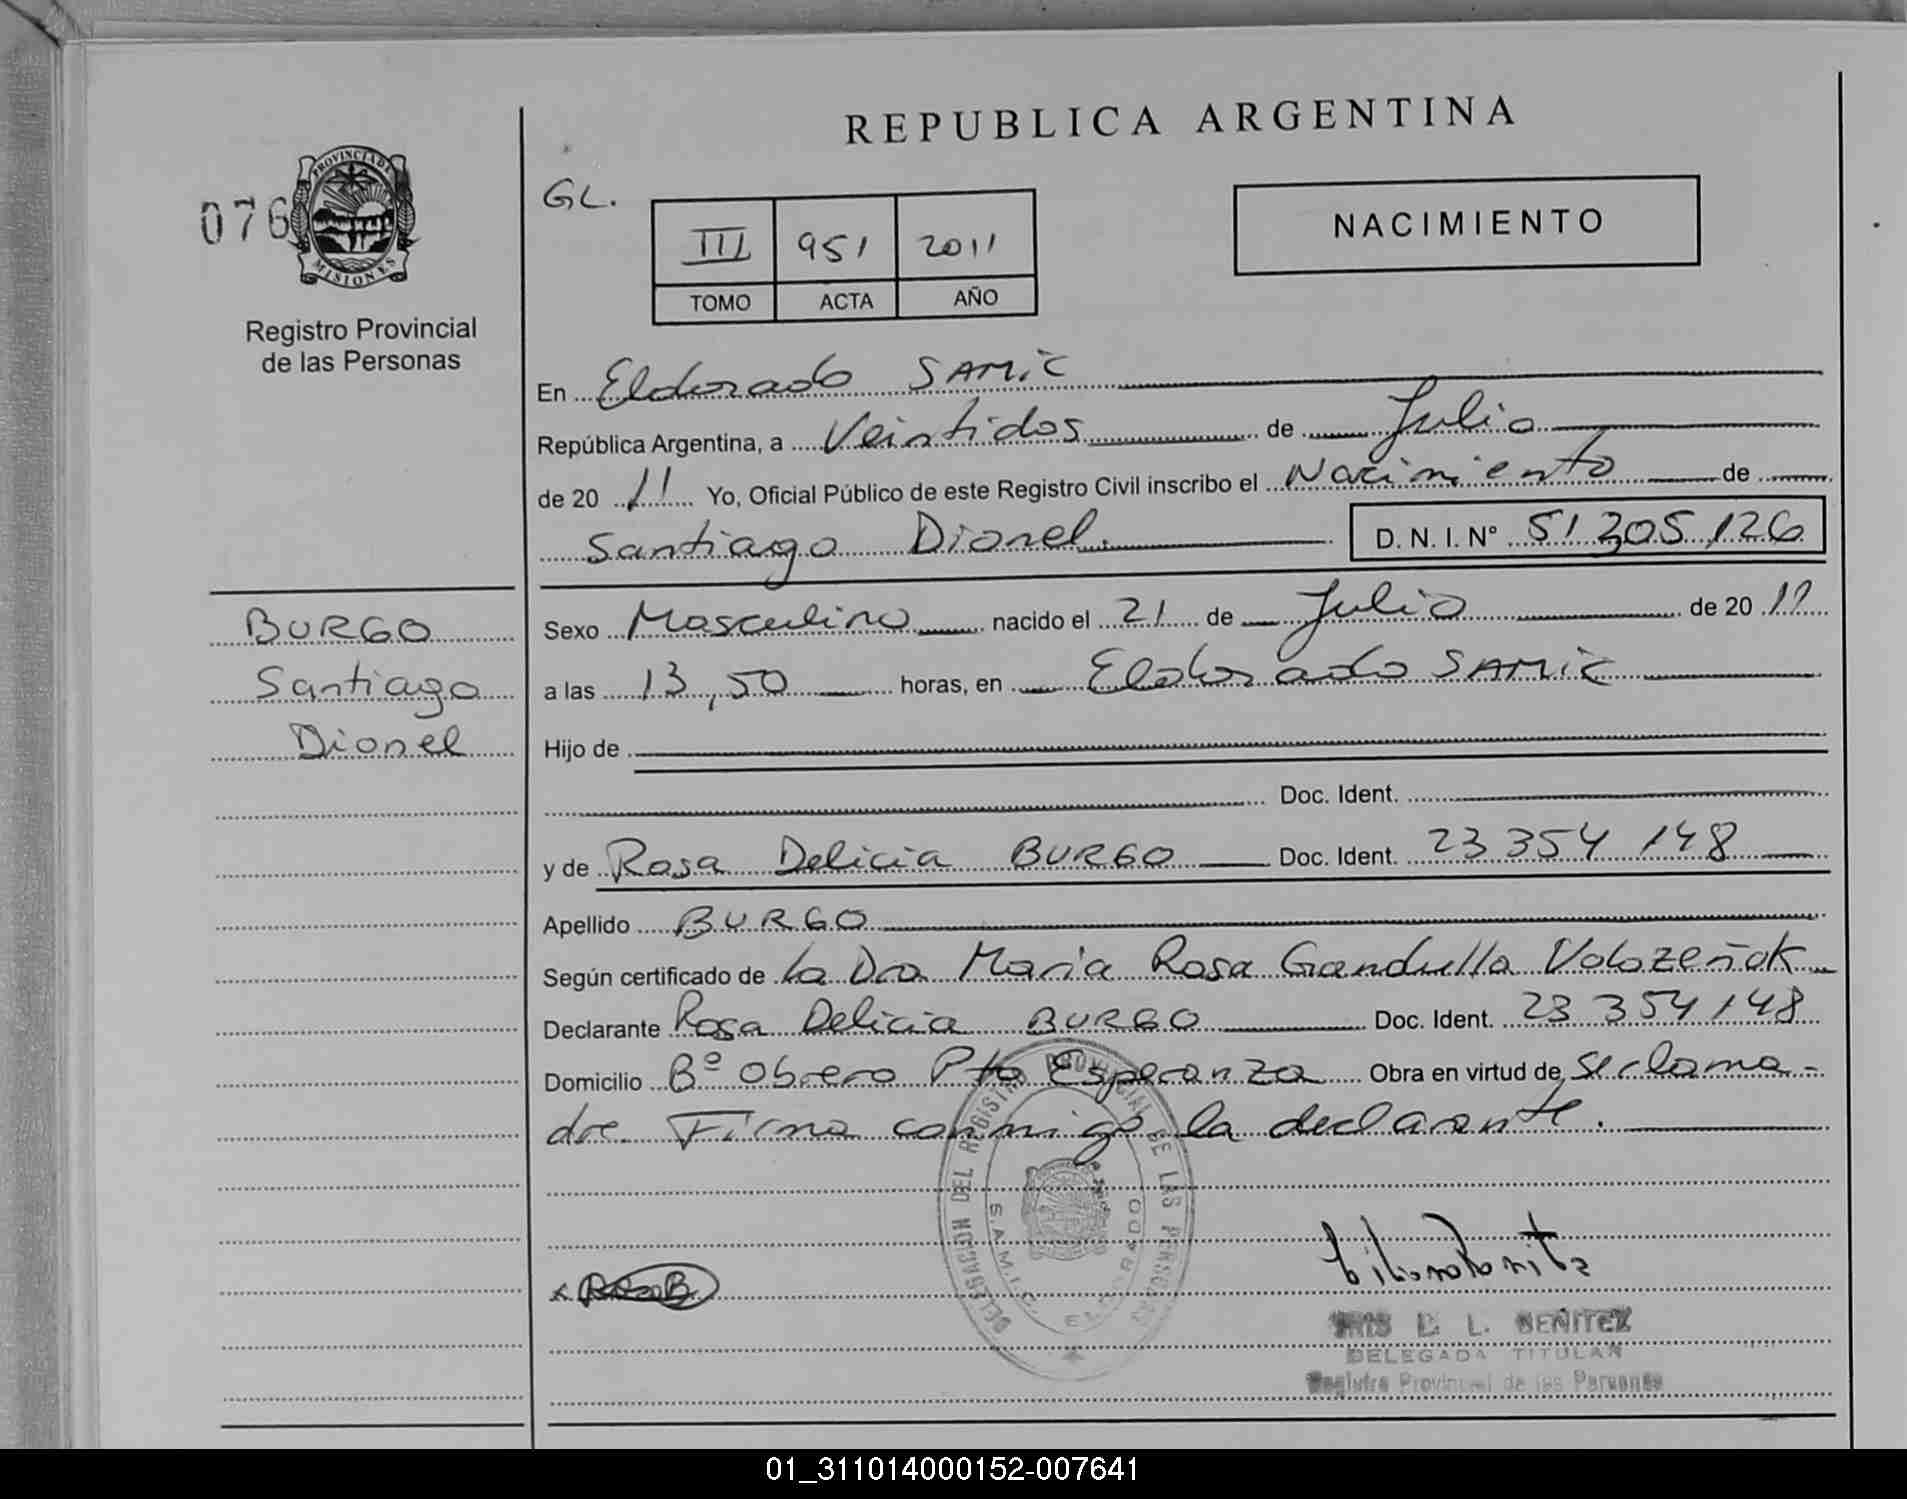 REPUBLICA ARGENTINA
076
PROVINCIA DE
MISIONES
Registro Provincial
de las Personas
GL.
NACIMIENTO
III 951 2011
TOMO ACTA AÑO
En Eldorado SAMIC
República Argentina, a Veintidos de Julio
de 20 11 Yo, Oficial Público de este Registro Civil inscribo el Nacimiento de
Santiago Dionel. D. N. I. Nº 51 305 126
BURGO
Santiago
Dionel
Sexo Masculino nacido el 21 de Julio de 20 11
a las 13,50 horas, en Eldorado SAMIC
Hijo de
Doc. Ident.
y de Rosa Delicia BURGO Doc. Ident. 23 354 148
Apellido BURGO
Según certificado de la Dra Maria Rosa Gandulla Volozeñok
Declarante Rosa Delicia BURGO Doc. Ident. 23 354 148
Domicilio Bº Obrero Pto Esperanza Obra en virtud de ser la ma-
dre Firma conmigo la declarante.
DELEGACION DEL REGISTRO PROVINCIAL DE LAS PERSONAS
S.A.M.I.C. ELDORADO
L. BENITEZ
DELEGADA TITULAR
Registro Provincial de las Personas
01_311014000152-007641